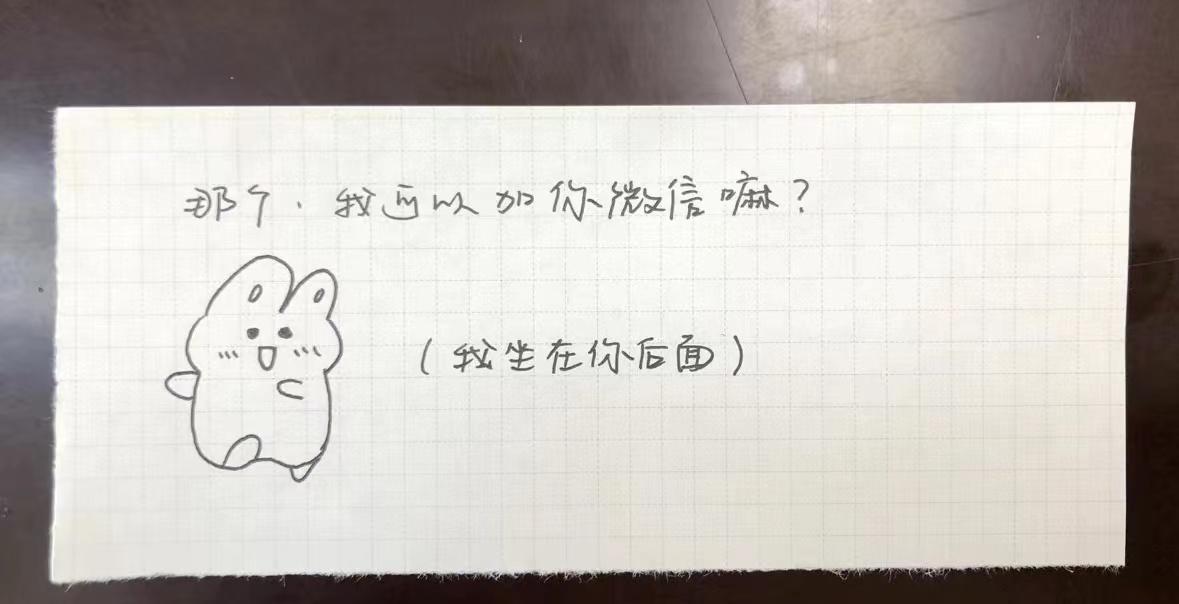 那个.我可以加你微信嘛?
(我坐在你后面)